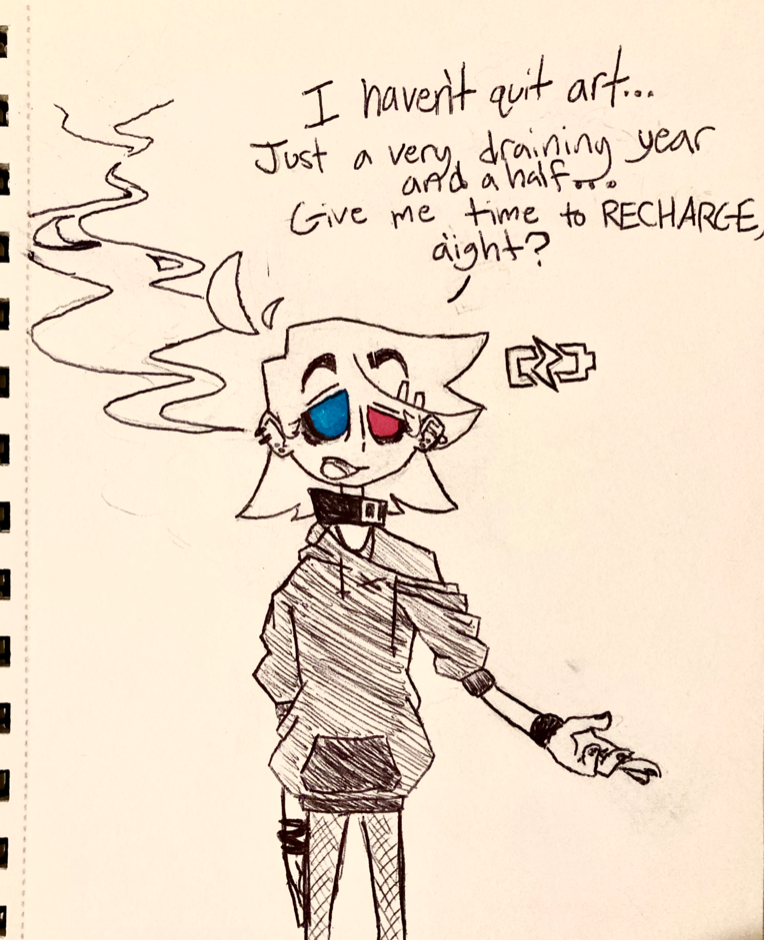 I haven't quit art...
Just a very draining year
and a half....
Give me time to RECHARGE,
aight?